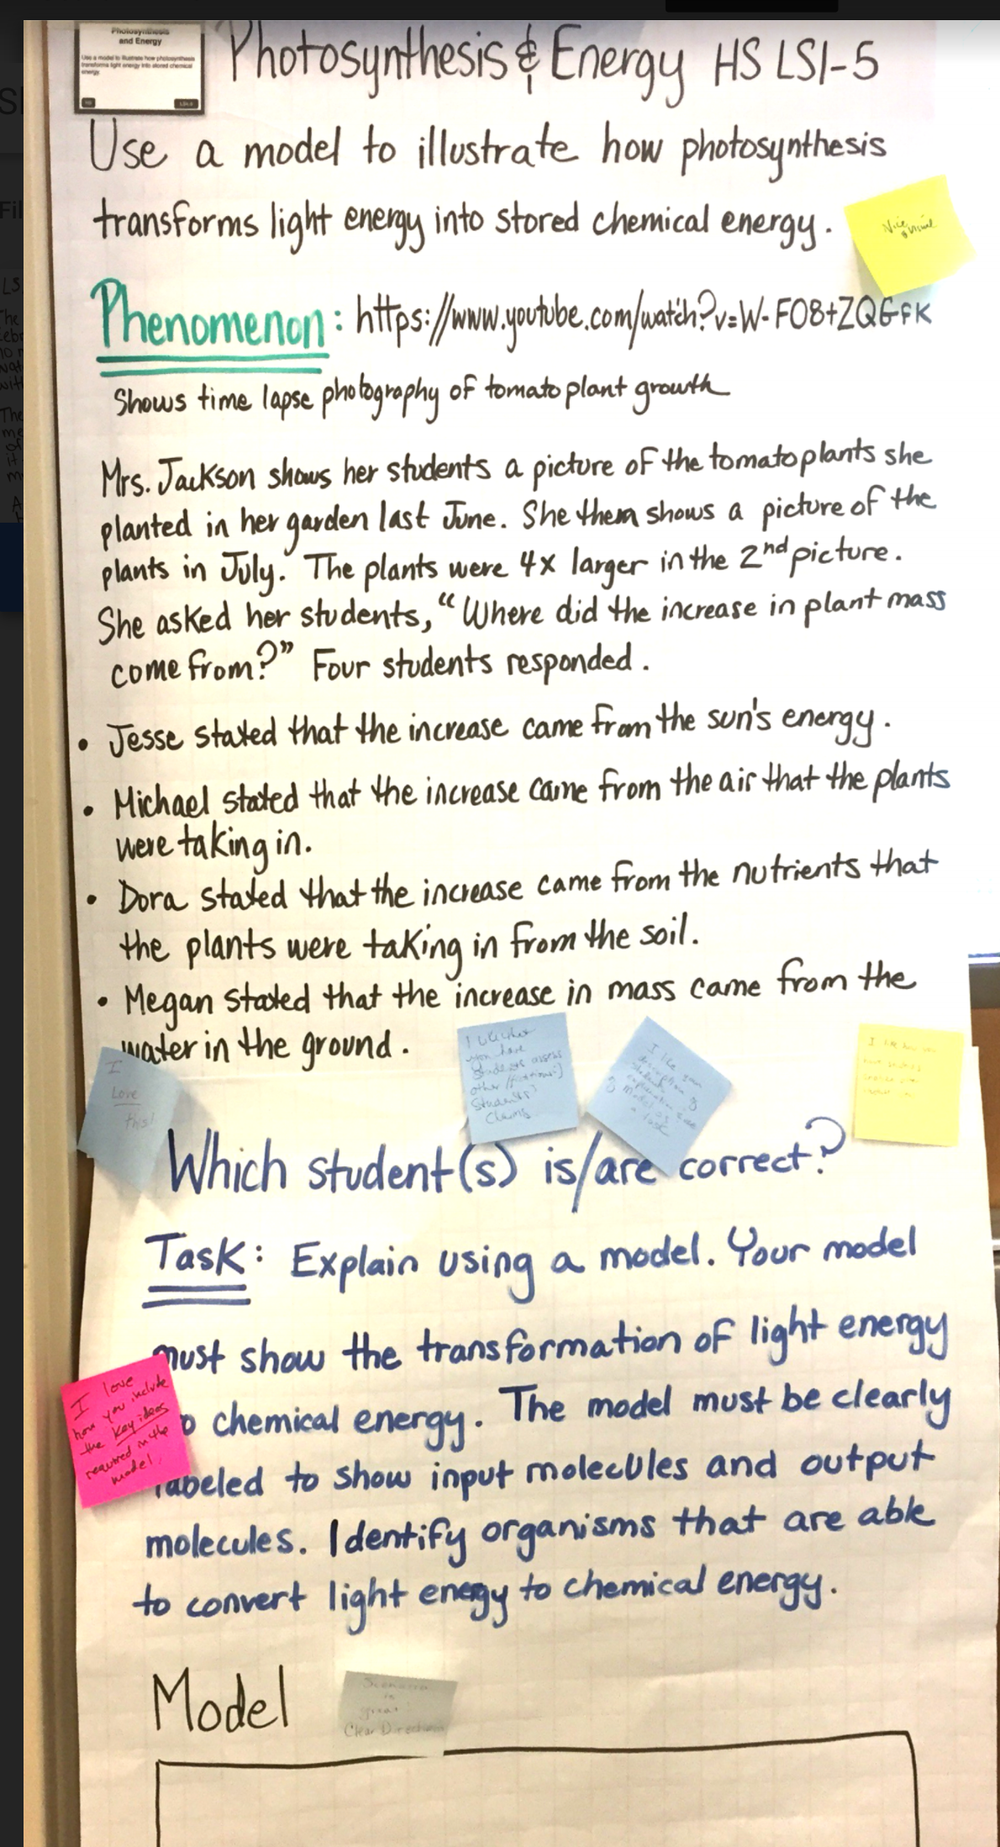 Photosynthesis
and Energy
Use a model to illustrate how photosynthesis
transforms light energy into stored chemical
energy.
Photosynthesis & Energy HS LS1-5
Use a model to illustrate how photosynthesis
transforms light energy into stored chemical energy.
Nice
visual
Phenomenon: https://www.youtube.com/watch?v=W-FO8tZQGfK
Shows time lapse photography of tomato plant growth
Mrs. Jackson shows her students a picture of the tomato plants she
planted in her garden last June. She them shows a picture of the
plants in July. The plants were 4x larger in the 2nd picture.
She asked her students, “Where did the increase in plant mass
come from?” Four students responded.
• Jesse stated that the increase came from the sun's energy.
• Michael stated that the increase came from the air that the plants
were taking in.
• Dora stated that the increase came from the nutrients that
the plants were taking in from the soil.
• Megan stated that the increase in mass came from the
water in the ground.
I
Love
this!
you have
Students assess
other
Students'
Claims
I like your
description of
Student
explanation
model as
a task
I like how you
Which student(s) is/are correct?
Task: Explain using a model. Your model
must show the transformation of light energy
I love
how you include
the key ideas
required in the
model.
to chemical energy. The model must be clearly
labeled to show input molecules and output
molecules. Identify organisms that are able
to convert light enegy to chemical energy.
Model
Scenario
is
great
Clear Directions